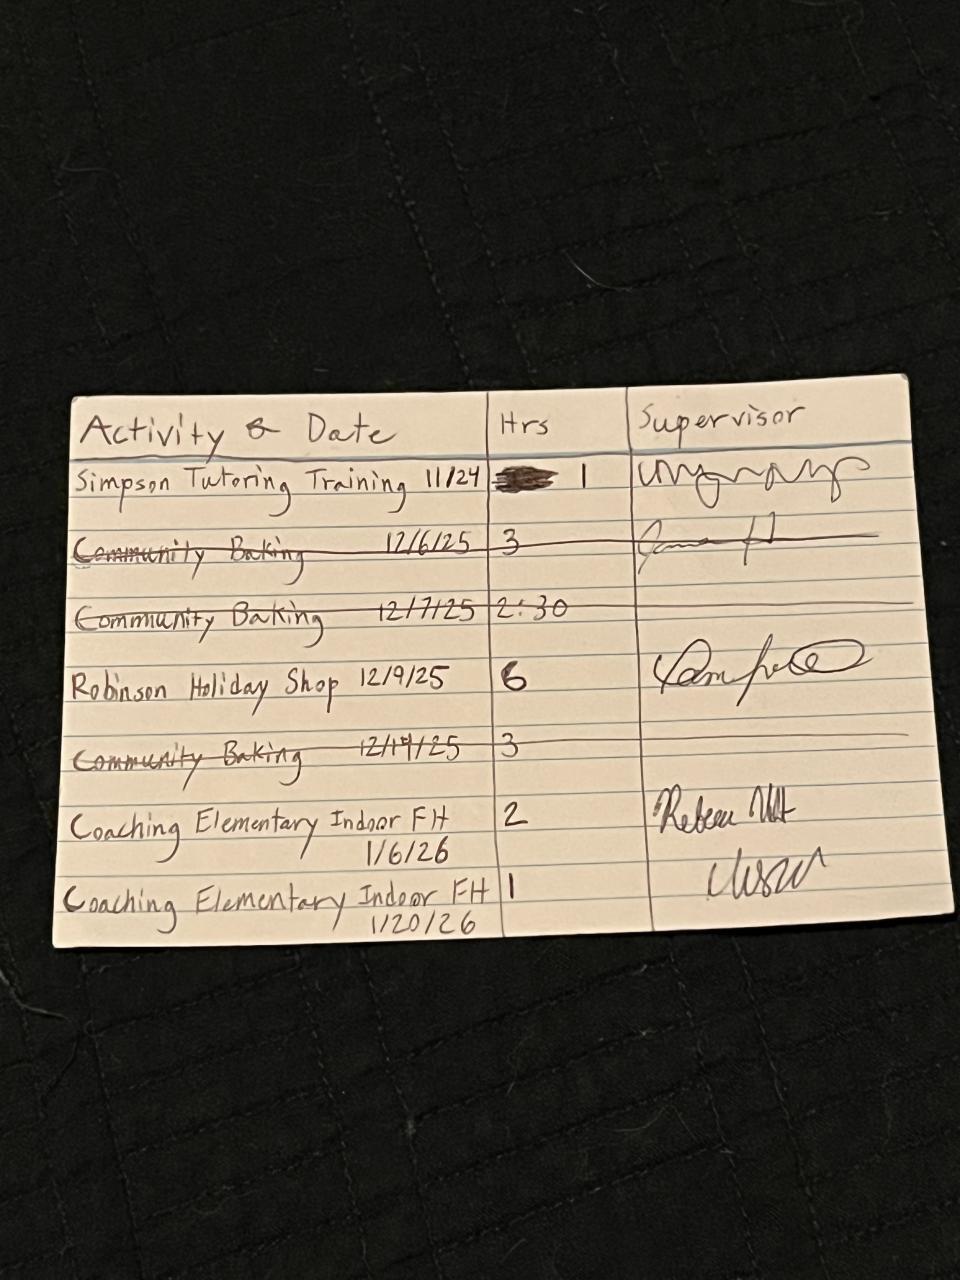 Activity & Date Hrs Supervisor
Simpson Tutoring Training 11/24 1
Community Baking 12/6/25 3
Community Baking 12/7/25 2:30
Robinson Holiday Shop 12/9/25 6
Community Baking 12/14/25 3
Coaching Elementary Indoor FH 2
1/6/26
Coaching Elementary Indoor FH 1
1/20/26